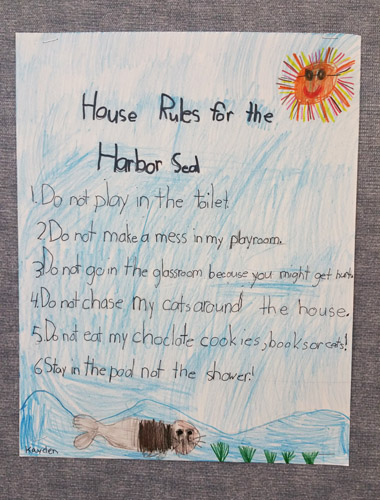 House Rules for the
Harbor Seal
1. Do not play in the toilet.
2. Do not make a mess in my playroom.
3. Do not go in the glassroom because you might get hurt.
4. Do not chase my cats around the house.
5. Do not eat my choclate cookies, books or cats!
6 Stay in the pool not the shower!
Kayden